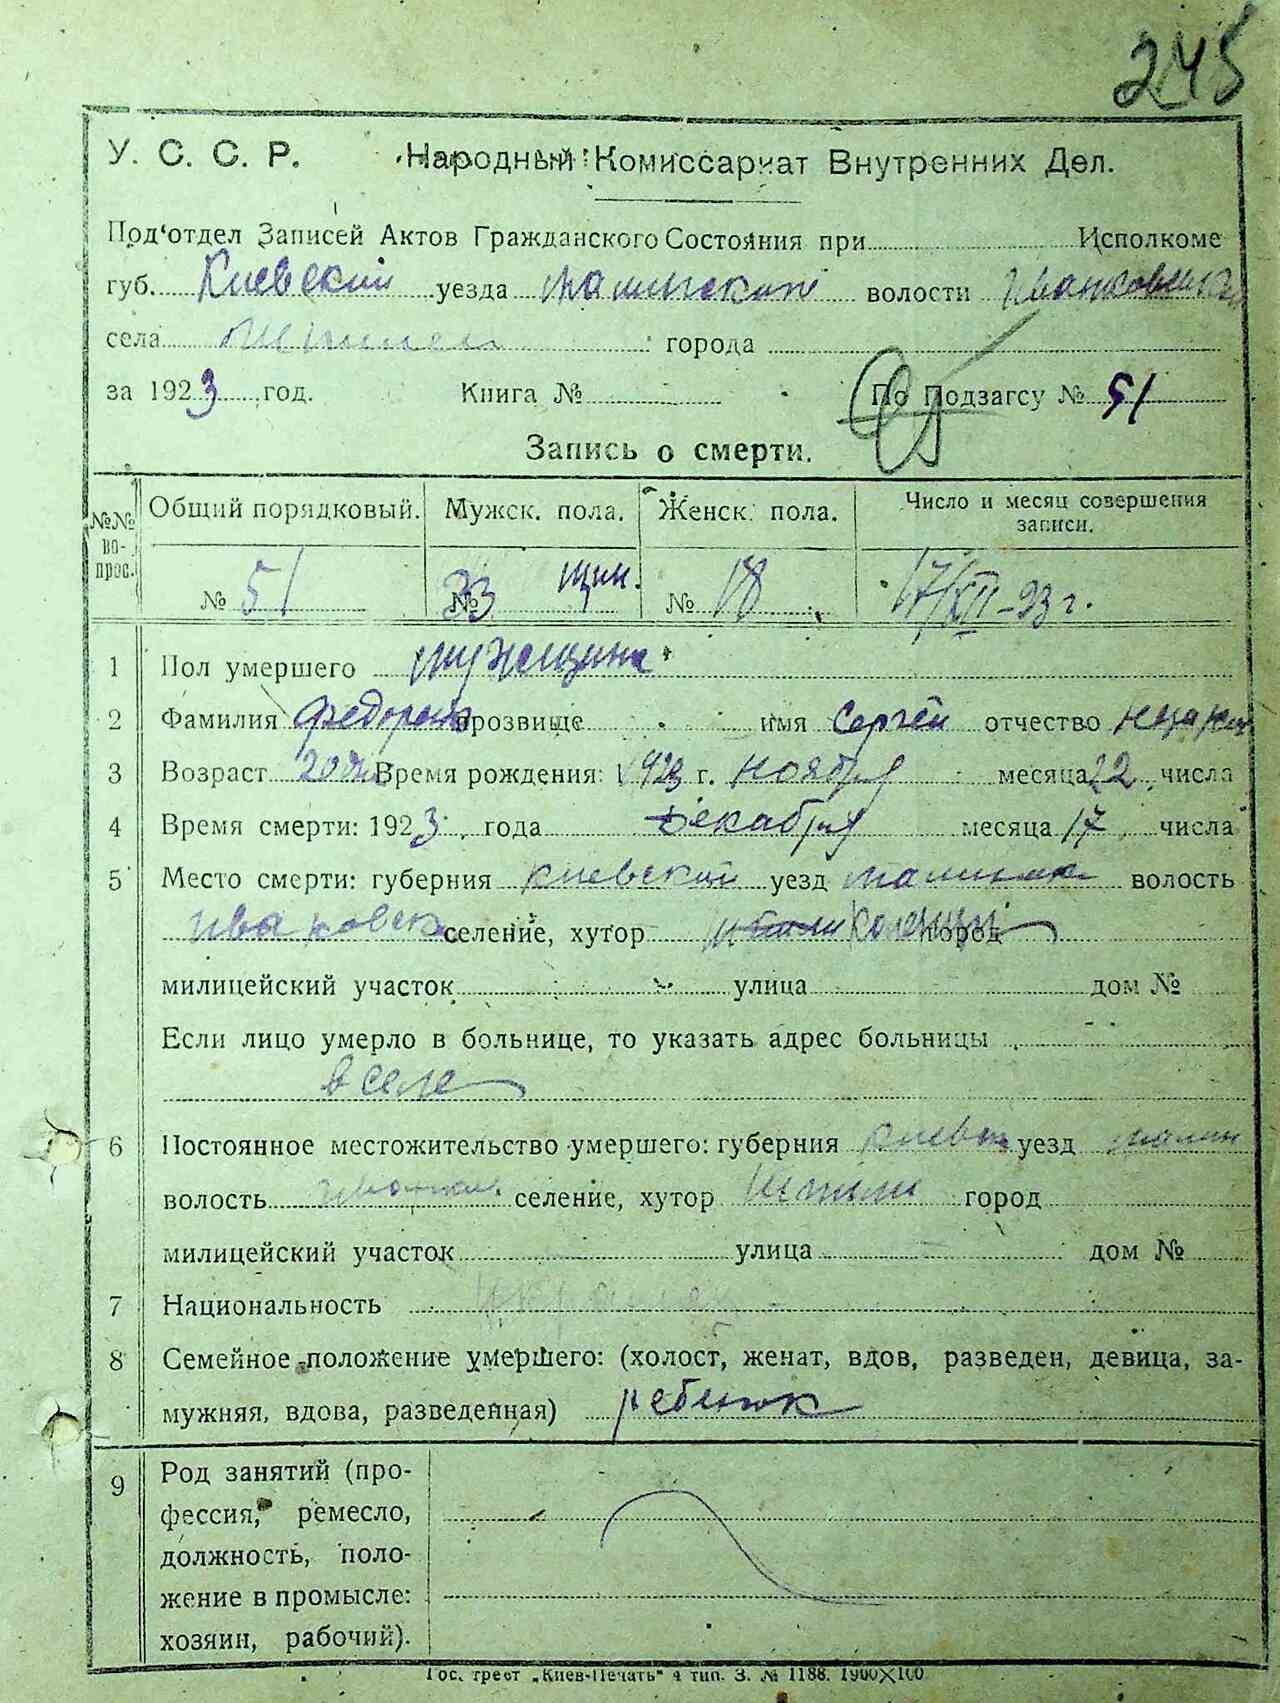 245
У. С. С. Р. Народный Комиссариат Внутренних Дел.
Под'отдел Записей Актов Гражданского Состояния при Исполкоме
губ. Киевский уезда волости
села города
за 1923 год. Книга № По Подзагсу № 51
Запись о смерти.
№№ вопрос. Общий порядковый. Мужск. пола. Женск. пола. Число и месяц совершения записи.
№ 51 № 33 № 18 17/XII-23 г.
1 Пол умершего мужщина
2 Фамилия прозвище имя Сергей отчество
3 Возраст Время рождения: 1923 г. ноября месяца 22 числа
4 Время смерти: 1923 года Декабря месяца 17 числа
5 Место смерти: губерния киевский уезд волость
селение, хутор город
милицейский участок улица дом №
Если лицо умерло в больнице, то указать адрес больницы
в селе
6 Постоянное местожительство умершего: губерния уезд
волость селение, хутор город
милицейский участок улица дом №
7 Национальность
8 Семейное положение умершего: (холост, женат, вдов, разведен, девица, за-
мужняя, вдова, разведенная) ребенок
9 Род занятий (про-
фессия, ремесло,
должность, поло-
жение в промысле:
хозяин, рабочий).
Гос. трест „Киев-Печать" 4 тип. З. № 1188. 1900×100